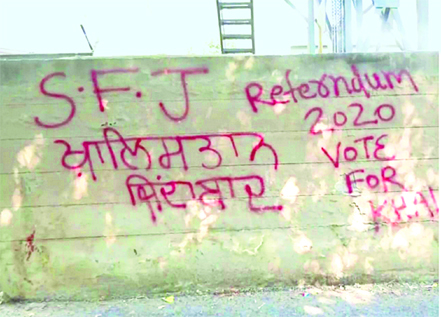 S.F.J
ਖ਼ਾਲਿਸਤਾਨ
ਜ਼ਿੰਦਾਬਾਦ
Referndum
2020
VOTE
FOR